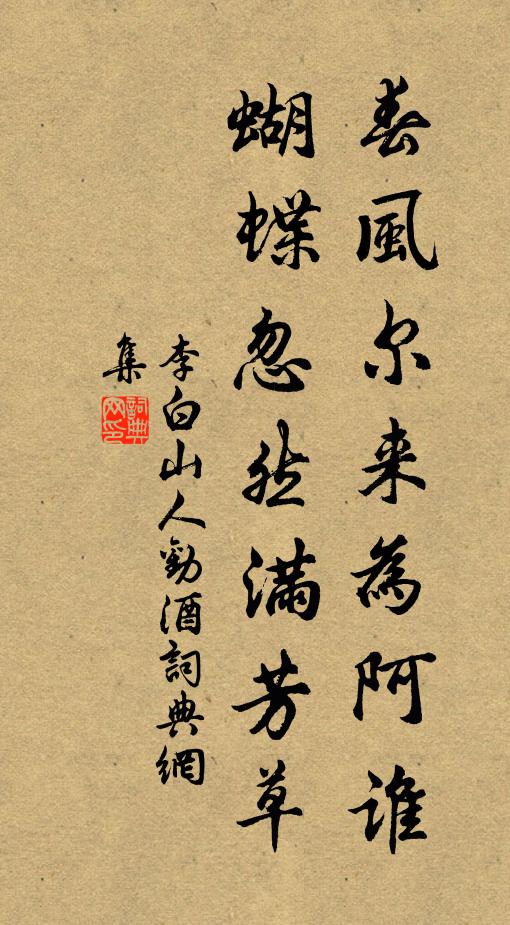 春風尔来為阿谁
蝴蝶忽然满芳草
李白山人勸酒詞典網
集
詞典網印